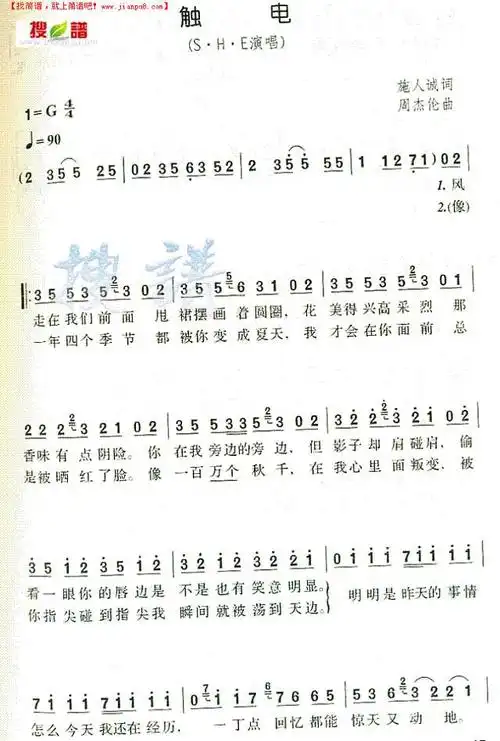 【找简谱,就上简谱吧】 www.jianpu8.com】
搜谱
触 电
(S·H·E演唱)
施人诚词
周杰伦曲
1=G 4/4
♩=90
(2 35 5 25 | 02 35 63 52 | 2 35 5 5 | 1 12 71) 02
1.风
2.(像)
搜谱
35 53 5 3 02 | 35 5 53 02 | 35 53 23 01
走在我们前面 甩 裙摆画着圆圈, 花 美得兴高采烈 那
一年四个季节 都 被你变成夏天, 我 才会在你面前 总
22 23 21 02 | 35 55 53 02 | 35 53 21 02
香味有点阴险。你 在我旁边的旁边, 但 影子却肩碰肩, 偷
是被晒红了脸。像 一百万个秋千, 在 我心里面叛变, 被
35 11 35 12 | 32 11 71 1 | 01 11 71 11
看一眼你的唇边是 不是也有笑意明显。 明明是昨天的事情
你指尖碰到指尖我 瞬间就被荡到天边。
71 11 71 12 | 01 61 55 65 | 5 36 22 21
怎么今天我还在经历, 一丁点回忆都能 惊天又动 地。